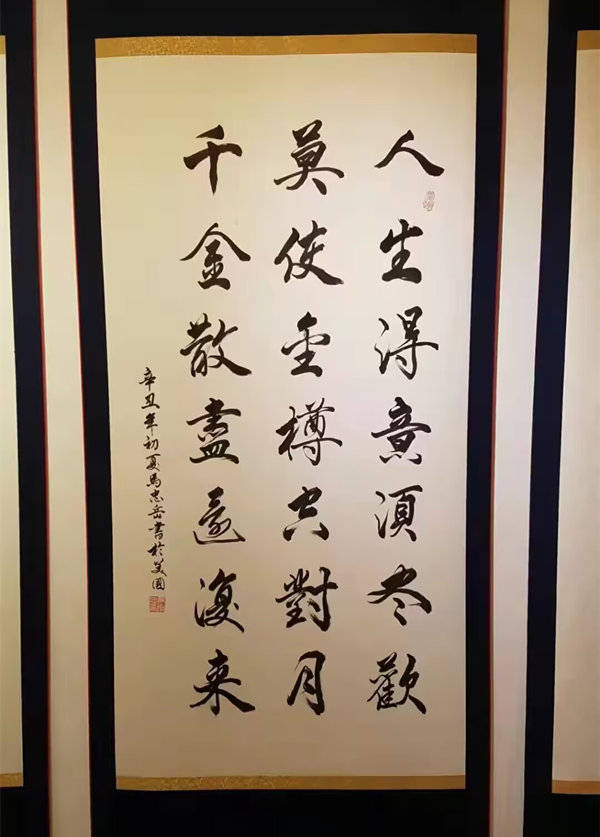 人生得意須尽歡
莫使金樽空對月
千金散盡還復来
辛丑年初夏馬忠岳書於美國